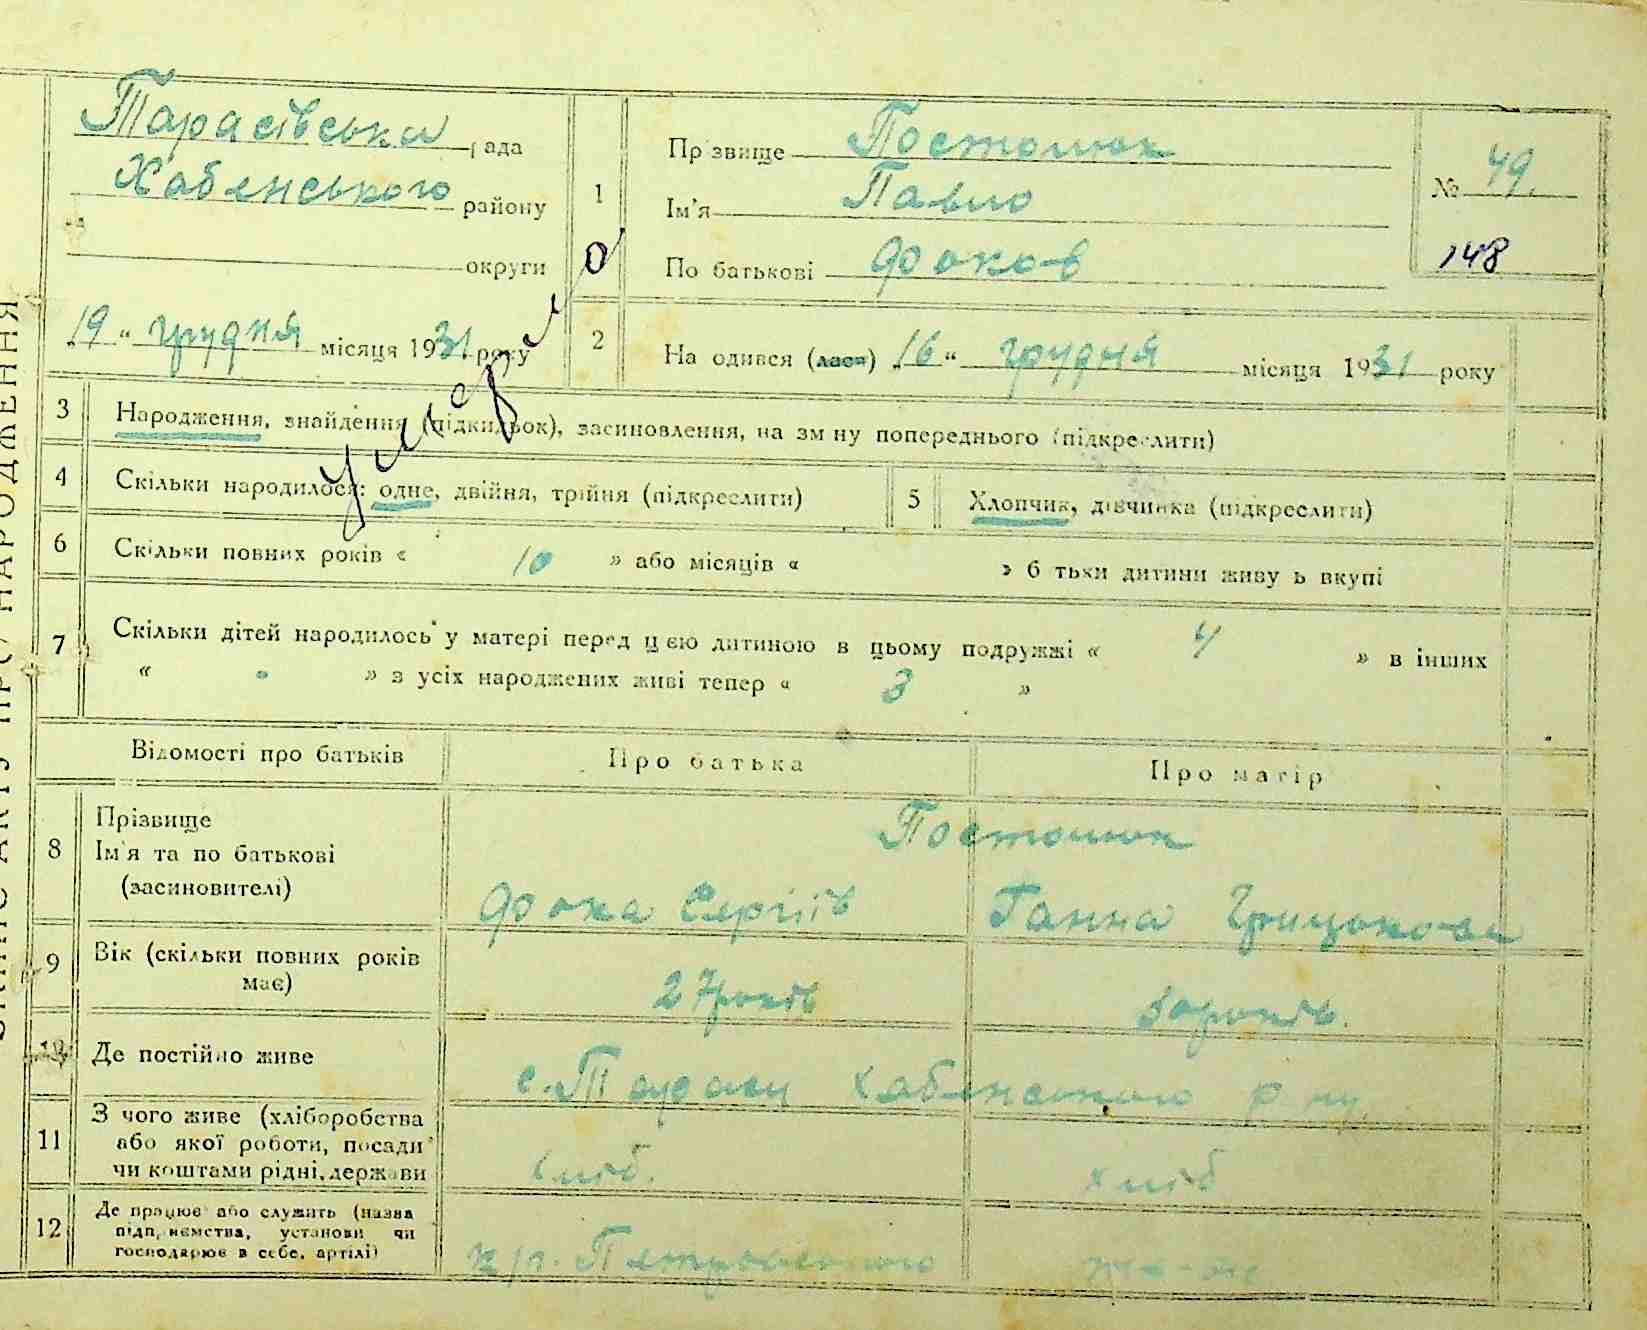 Тарасівська рада
Хабенського району
округи
„19“ грудня місяця 1931 року
1
Прізвище Постолюк
Ім'я Павло
По батькові Фоков
№ 49.
148
умерло
2
Народився (лася) „16“ грудня місяця 1931 року
3 Народження, знайдення (підкидьок), засиновлення, на зміну попереднього (підкреслити)
4 Скільки народилося: одне, двійня, трійня (підкреслити)
5 Хлопчик, дівчинка (підкреслити)
6 Скільки повних років « 10 » або місяців « » батьки дитини живуть вкупі
7 Скільки дітей народилось у матері перед цією дитиною в цьому подружжі « 4 » в інших
« - » з усіх народжених живі тепер « 3 »
Відомості про батьків
Про батька
Про матір
8
Прізвище
Ім'я та по батькові
(засиновителі)
Постолюк
Фока Сергіїв
Ганна Грицькова
9
Вік (скільки повних років
має)
27 років
30 років.
10 Де постійно живе
с. Тараси Хабенського р-ну.
11
З чого живе (хліборобства
або якої роботи, посади
чи коштами рідні, держави
хліб.
хліб
12
Де працює або служить (назва
підприємства, установи чи
господарює в себе, артілі)
к/г. Петровського
ЗАПИС АКТУ ПРО НАРОДЖЕННЯ